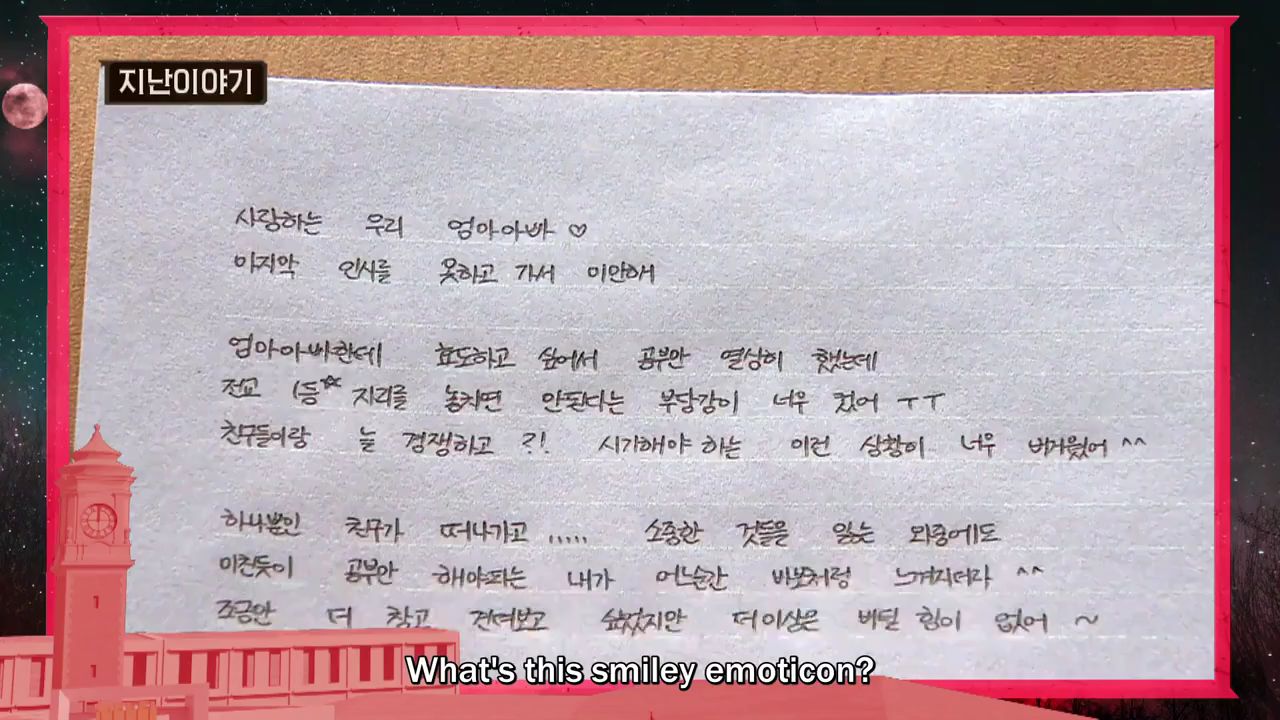 지난이야기
사랑하는 우리 엄마아빠 ♡
마지막 인사를 못하고 가서 미안해
엄마아빠한테 효도하고 싶어서 공부만 열심히 했는데
전교 1등☆ 자리를 놓치면 안된다는 부담감이 너무 컸어 ㅜㅜ
친구들이랑 늘 경쟁하고 ?! 시기해야 하는 이런 상황이 너무 버거웠어 ^^
하나뿐인 친구가 떠나가고 ..... 소중한 것들을 잃는 와중에도
미친듯이 공부만 해야하는 내가 어느순간 바보처럼 느껴지더라 ^^
조금만 더 참고 견뎌보고 싶었지만 더이상은 버틸 힘이 없어 ~
What's this smiley emoticon?